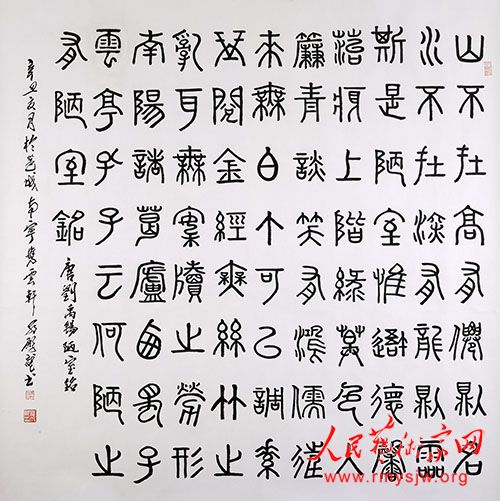 山不在高有僊則名
水不在深有龍則靈
斯是陋室惟吾德馨
苔痕上階綠草色入
簾青談笑有鴻儒往
來無白丁可以調素
琴閱金經無絲竹之
亂耳無案牘之勞形
南陽諸葛廬西蜀子
雲亭孔子云何陋之
有陋室銘
唐劉禹錫陋室銘
辛丑夏月於邕城南寧雲軒書
人民藝術家网
www.rmysjw.org